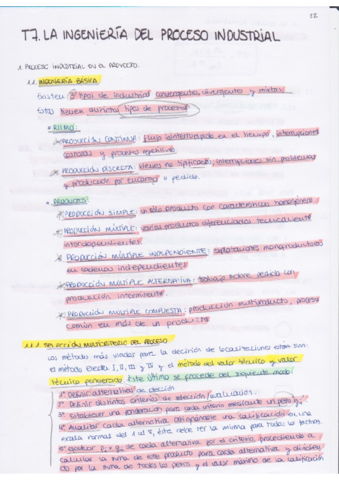 T7. LA INGENIERÍA DEL PROCESO INDUSTRIAL
1. PROCESO INDUSTRIAL EN EL PROYECTO.
1.1. INGENIERÍA BÁSICA
Existen 3 tipos de industrias: convergentes, divergentes y mixtas.
Estas tienen distintos tipos de procesos:
• RITMO:
* PRODUCCIÓN CONTINUA: flujo ininterrumpido en el tiempo, interrupciones
costosas y proceso repetitivo.
* PRODUCCIÓN DISCRETA: bienes no tipificados, interrupciones sin problemas
y producidos por encargo o pedido.
• PRODUCTO:
* PRODUCCIÓN SIMPLE: un sólo producto con características homogéneas
* PRODUCCIÓN MÚLTIPLE: varios productos diferenciados técnicamente
interdependientes
* PRODUCCIÓN MÚLTIPLE INDEPENDIENTE: explotaciones monoproductoras
en cadenas independientes
* PRODUCCIÓN MULTIPLE ALTERNATIVA: trabaja sobre pedido con
producción intermitente.
* PRODUCCIÓN MULTIPLE COMPUESTA: producción multiproducto,
común en más de un producto
1.1.1. SELECCIÓN MULTICRITERIO DEL PROCESO
Los métodos más usados para la decisión de localizaciones
el método Electra I, II, III y IV y el método del valor técnico y valor
técnico ponderado. Este último se procede del siguiente modo:
1º Definir alternativas de decisión
2º Definir distintos criterios de selección/evaluación.
3º Establecer una ponderación para cada criterio mediante un peso
4º Analizar cada alternativa otorgándose una calificación en una
escala normal del 1 al 5, ésta debe ser la misma para todos los factores
5º de cada alternativa por el criterio procediendo a
calcular la suma de este producto para cada alternativa y
do por la suma de todos los pesos y el valor máximo de la calificación